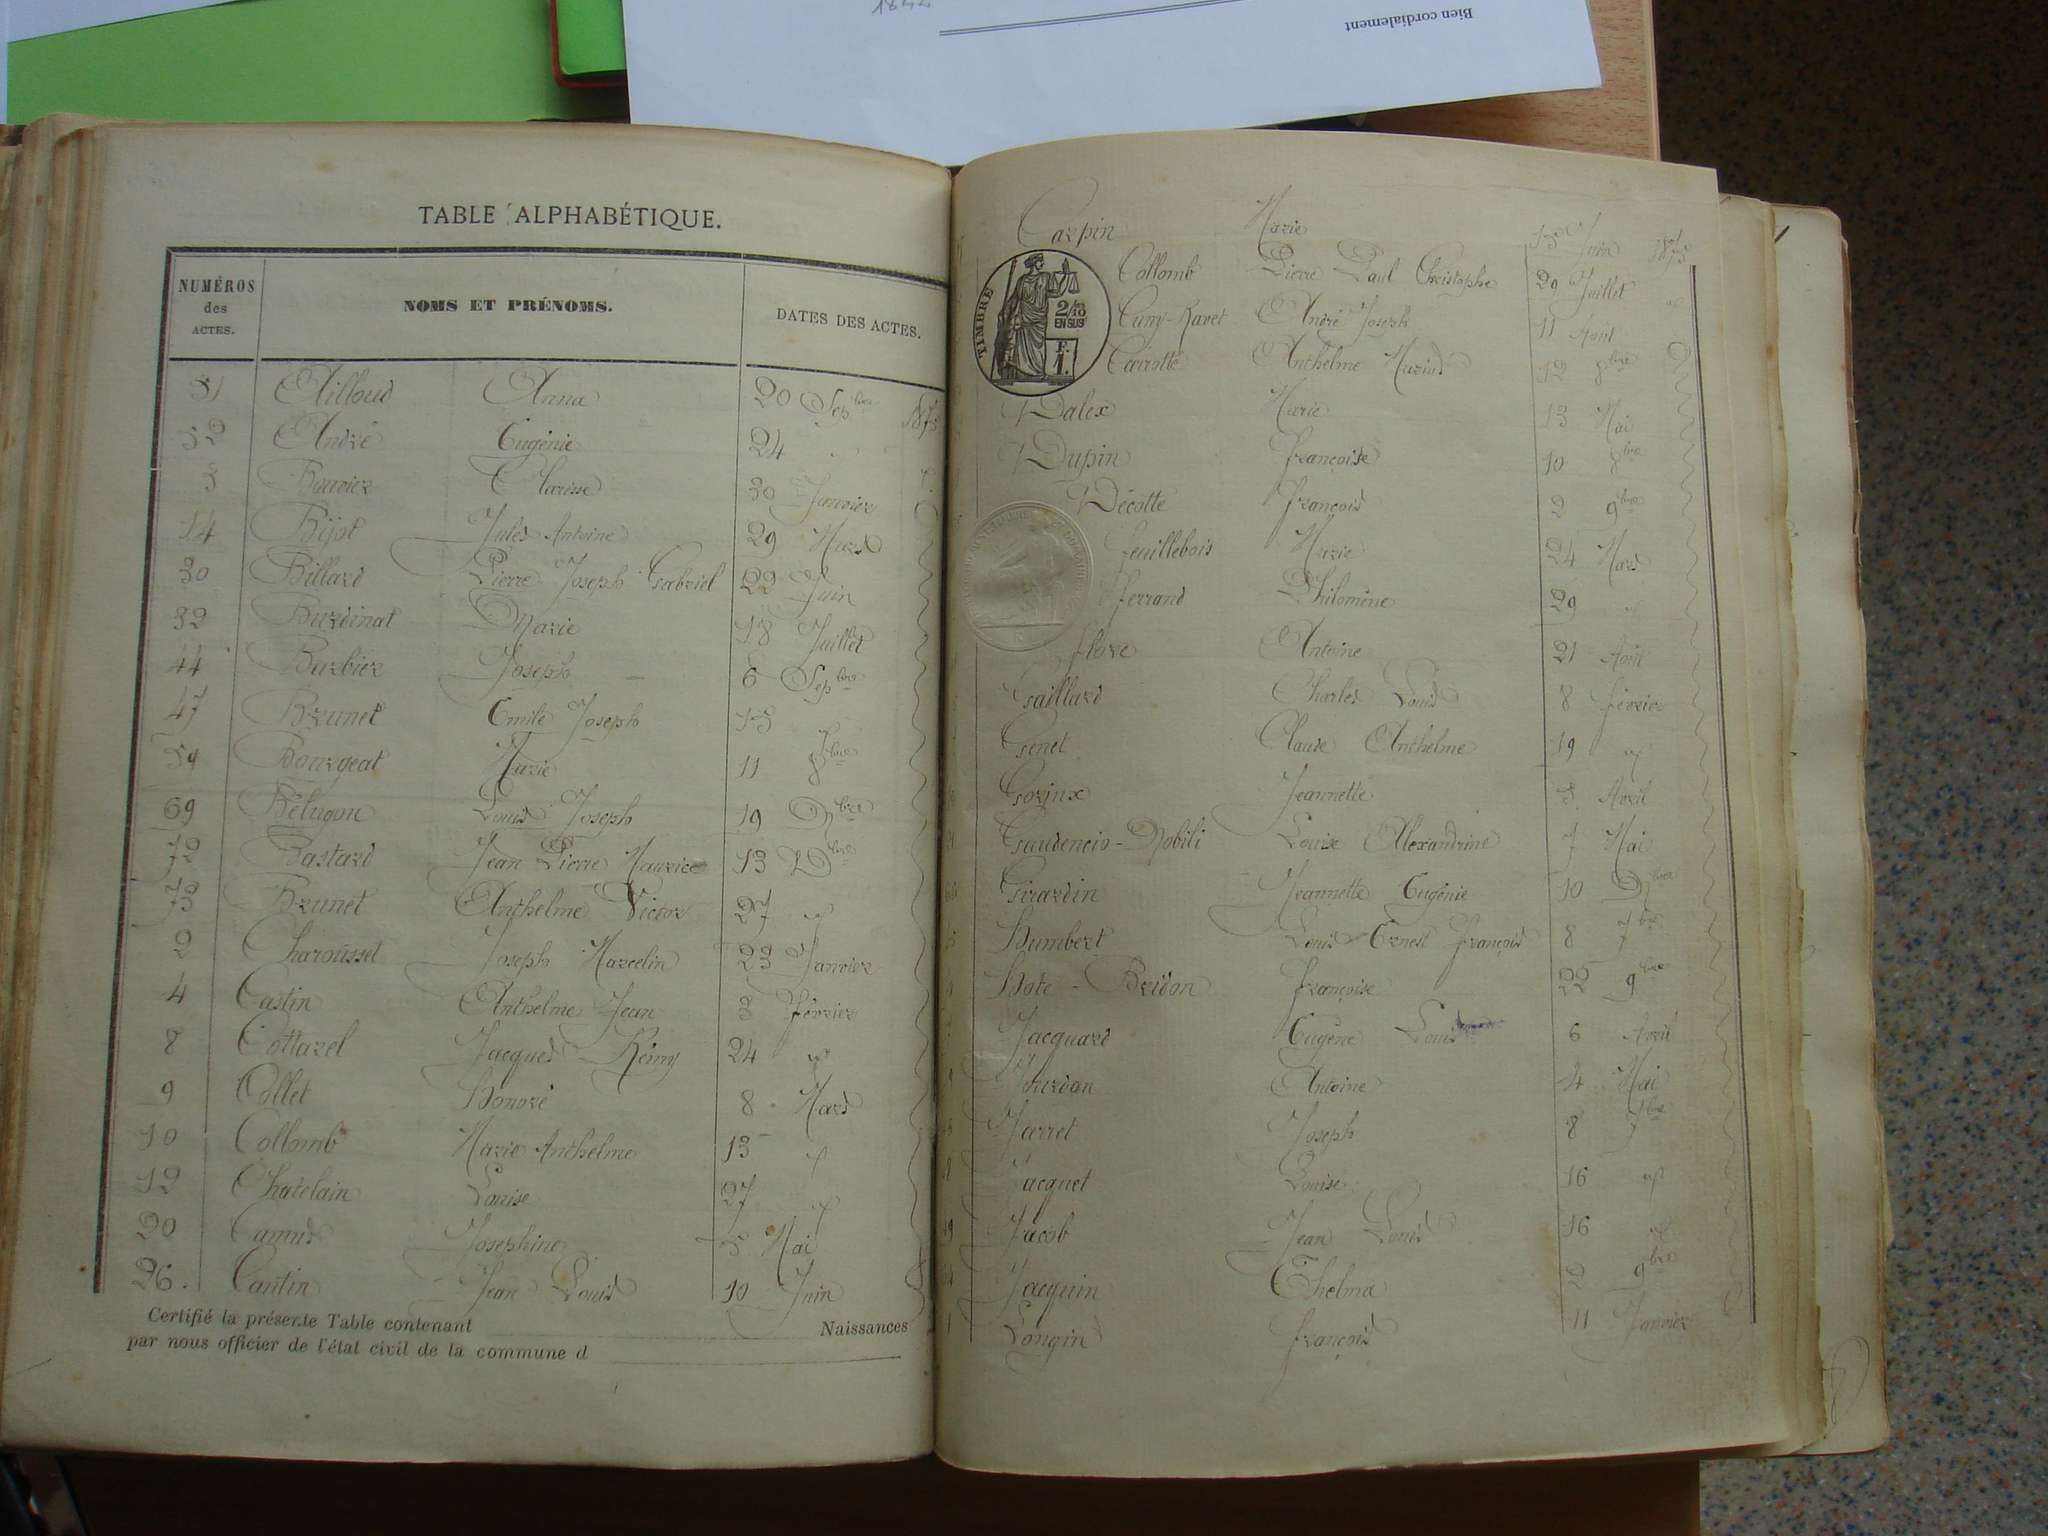 Bien cordialement
TABLE ALPHABÉTIQUE.
NUMÉROS des ACTES.
NOMS ET PRÉNOMS.
DATES DES ACTES.
51 Ailloud Anna 20 Sepbre 1875
52 André Eugénie 24 "
3 Bouvier Clarisse 30 Janvier "
14 Bijot Jules Antoine 29 Mars
30 Billard Pierre Joseph Gabriel 22 Juin
32 Burdinat Marie 18 Juillet
44 Barbier Joseph 6 Sepbre
47 Brunet Emile Joseph 15
59 Bourgeat Marie 11 8bre
69 Bélugon Louis Joseph 19 Nbre
72 Bastard Jean Pierre Maurice 13 Dbre
73 Brunet Anthelme Victor 27 "
2 Charousset Joseph Marcelin 23 Janvier
4 Castin Anthelme Jean 3 février
8 Cottarel Jacques Rémy 24 "
9 Collet Honoré 8 Mars
10 Collomb Marie Anthelme 13 "
12 Chatelain Louise 27 "
20 Camus Josephine 5 Mai
26. Cantin Jean Louis 10 Juin
Certifié la présente Table contenant Naissances
par nous officier de l'état civil de la commune d
Carpin Marie 15 Juin 1875
TIMBRE
2/10
EN SUS
F.
1.
Collomb Pierre Paul Christophe 29 Juillet "
Cuny-Ravet André Joseph 11 Août
Carrotte Anthelme Marius 12 8bre
Dalex Marie 13 Mai
Dupin françoise 10 8bre
Décotte françois 2 9bre
feuillebois Marie 24 Mars
ferrand Philomène 29 "
flore Antoine 21 Août
Gaillard Charles Louis 8 février
Genet Claude Anthelme 19 "
Gorjux Jeannette 5 Avril
Gaudencio-Nobili Louise Alexandrine 7 Mai
Girardin Jeannette Eugénie 10 Nbre
Humbert Louis Ernest françois 8 7bre
Hote-Bridon françoise 22 9bre
Jacquard Eugène Louis 6 Avril
Jourdan Antoine 4 Mai
Jerret Joseph 8 7bre
Jacquet Louise 16 "
Jacob Jean Louis 16 "
Jacquin Thelma 2 9bre
Longin françois 11 Janvier